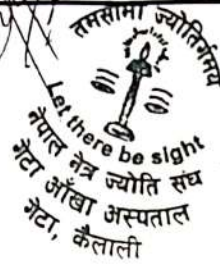 तमसोमा ज्योतिर्गमय
Let there be sight
नेपाल नेत्र ज्योति संघ
गेटा आँखा अस्पताल
गेटा, कैलाली